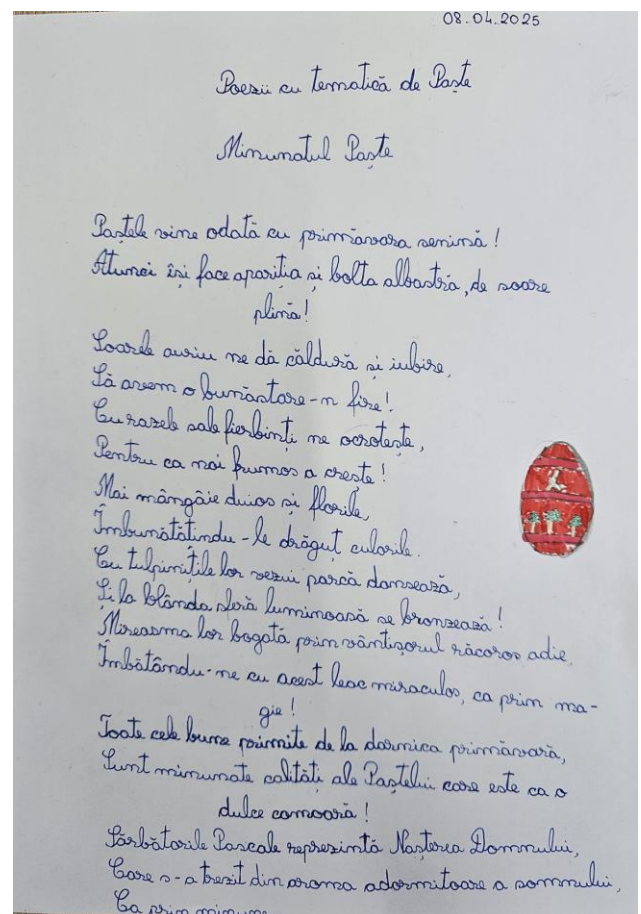 08.04.2025
Poezii cu tematică de Paște
Minunatul Paște
Paștele vine odată cu primăvara senină!
Atunci își face apariția și bolta albastră, de soare
plină!
Soarele auriu ne dă căldură și iubire,
Să avem o bunăstare-n fire!
Cu razele sale fierbinți ne ocrotește,
Pentru ca noi frumos a crește!
Mai mângâie duios și florile,
Îmbunătățindu-le drăguț culorile.
Cu tulpinițele lor verzui parcă dansează,
Și la blânda sferă luminoasă se bronzează!
Mireasma lor bogată prin vântișorul răcoros adie,
Îmbătându-ne cu acest leac miraculos, ca prin ma-
gie!
Toate cele bune primite de la darnica primăvară,
Sunt minunate calități ale Paștelui care este ca o
dulce comoară!
Sărbătorile Pascale reprezintă Nașterea Domnului,
Care s-a trezit din aroma adormitoare a somnului,
Ca prin minune